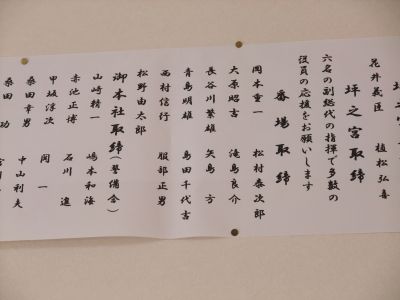 坪之宮
花井義臣 植松弘喜
坪之宮取締
六名の副総代の指揮で多数の
役員の応援をお願いします
番場取締
岡本重一 松村泰次郎
大原昭吉 滝島良介
長谷川繁雄 矢島方
青島明雄 島田千代吉
西村信行 服部正男
松野由太郎
御本社取締(警備含)
山崎精一 嶋本和海
赤池正博 石川進
甲坂淳次 岡一
桑田幸男 中山利夫
桑田功